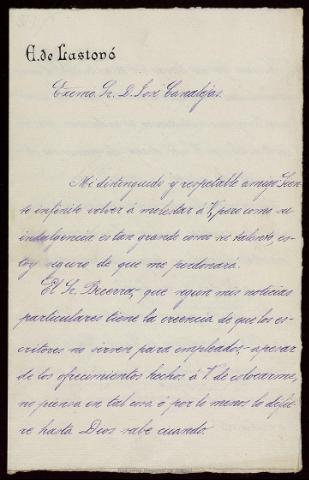 E. de Lastonó
Excmo. Sr. D. José Canalejas.
Mi distinguido y respetable amigo: Sien-
to infinito volver á molestar á V, pero como su
indulgencia es tan grande como su talento, es-
toy seguro de que me perdonará.
El Sr. Becerra, que segun mis noticias
particulares tiene la creencia de que los es-
critores no sirven para empleados, apesar
de los ofrecimientos hechos á V de colocarme,
no piensa en tal cosa ó por lo menos lo defie-
re hasta Dios sabe cuando.